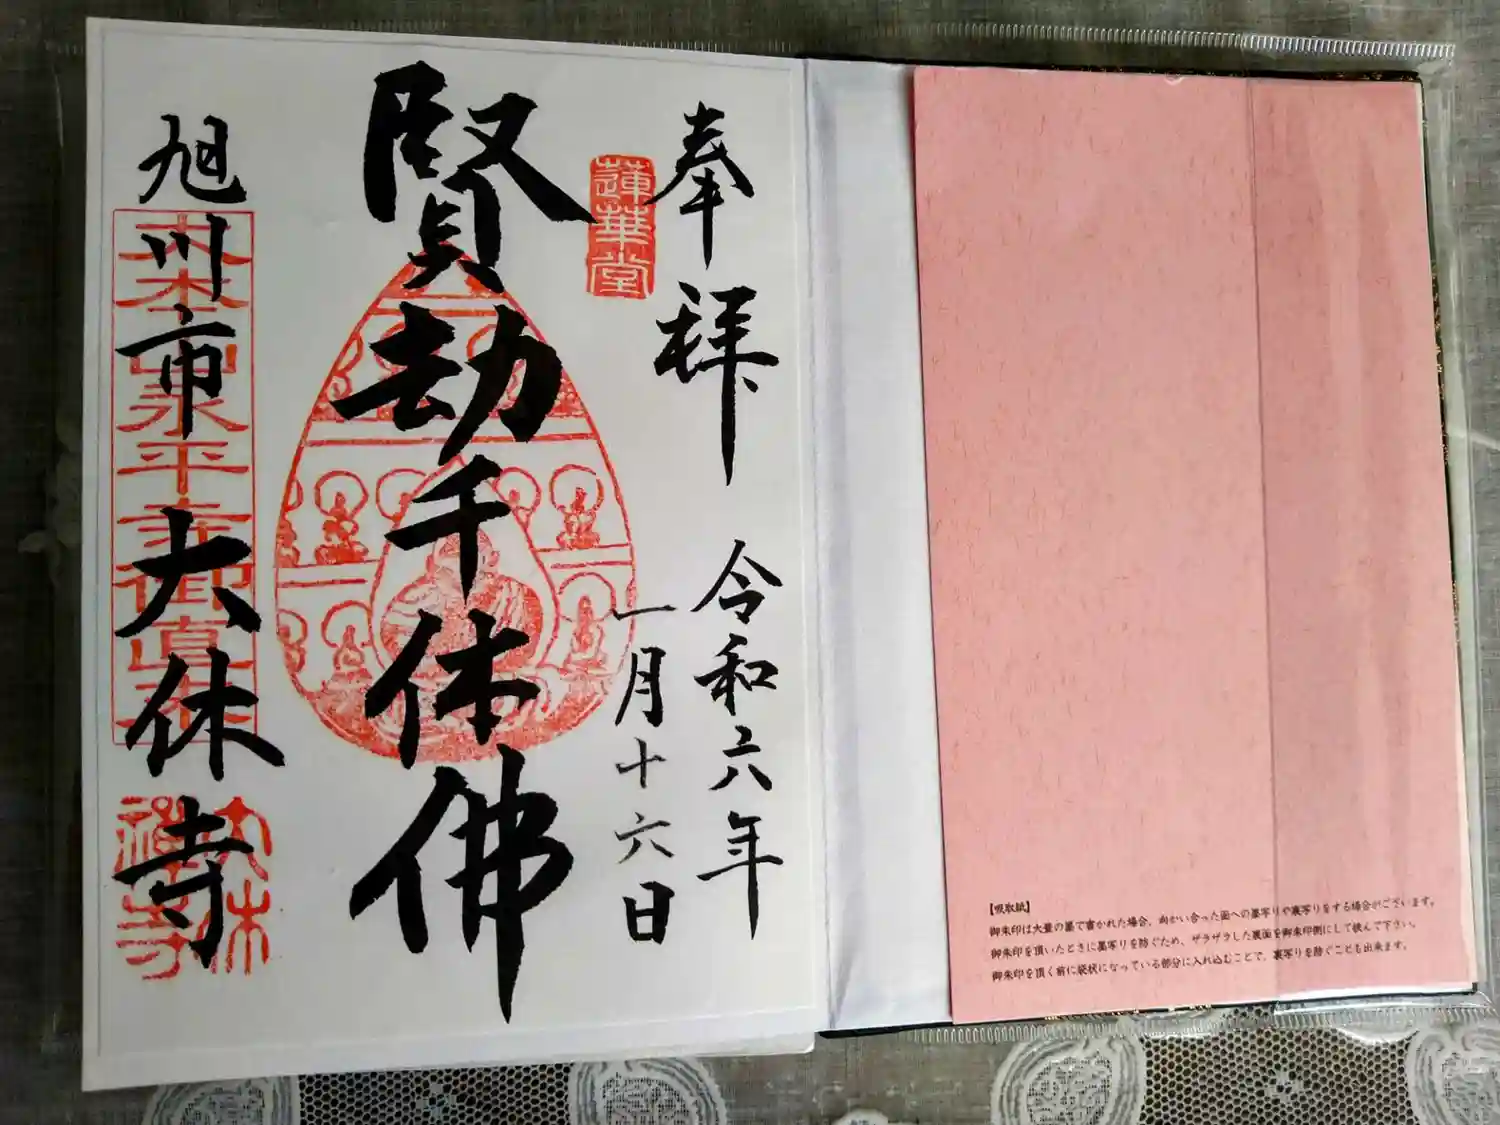 奉拝
令和六年
一月十六日
蓮華堂
賢劫千体佛
旭川市大休寺
大本山永平寺御直末
大休
禅寺
【吸取紙】
御朱印は大量の墨で書かれた場合、向かい合った面への墨写りや裏写りをする場合がございます。
御朱印を頂いたときに墨写りを防ぐため、ザラザラした裏面を御朱印側にして挟んで下さい。
御朱印を頂く前に袋状になっている部分に入れ込むことで、裏写りを防ぐことも出来ます。